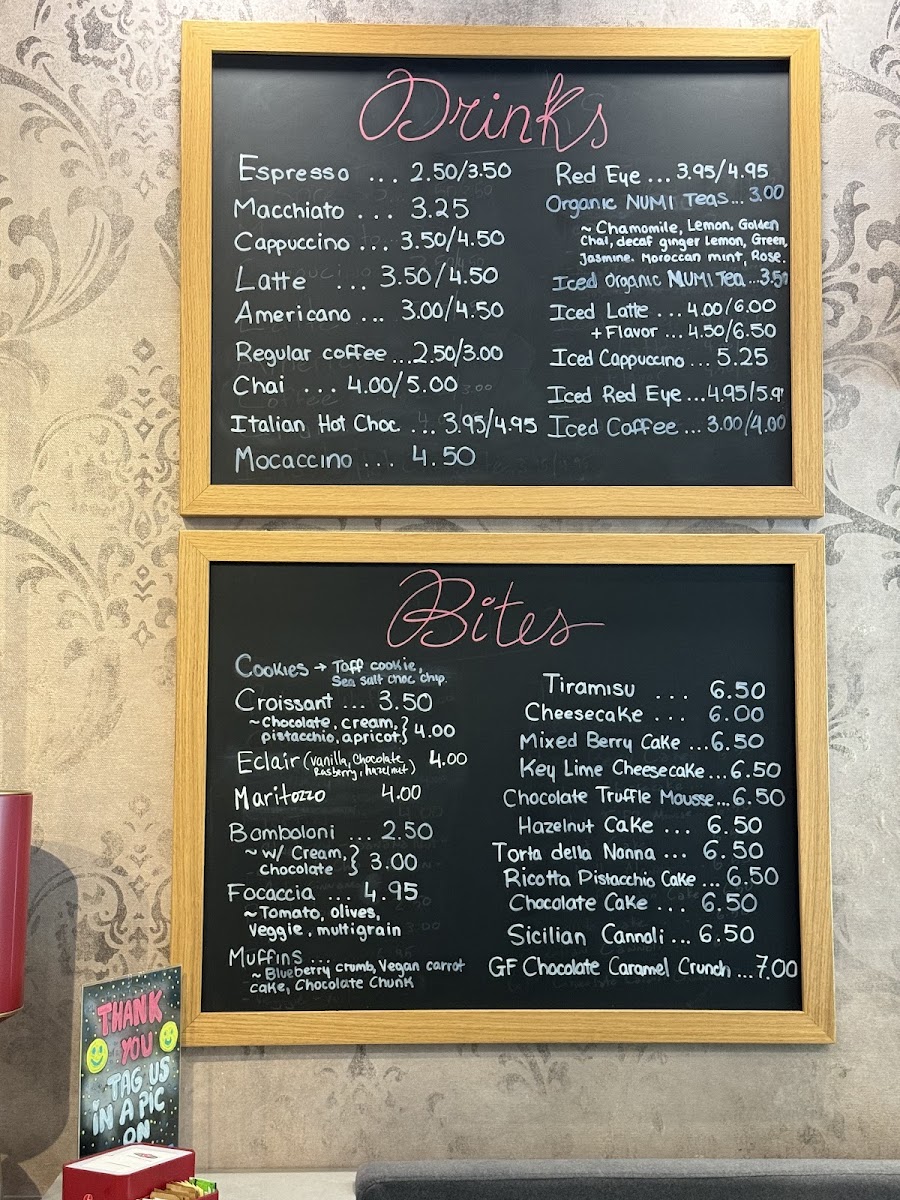 Drinks
Espresso ... 2.50/3.50
Macchiato ... 3.25
Cappuccino ... 3.50/4.50
Latte ... 3.50/4.50
Americano ... 3.00/4.50
Regular coffee ... 2.50/3.00
Chai ... 4.00/5.00
Italian Hot Choc ... 3.95/4.95
Mocaccino ... 4.50
Red Eye ... 3.95/4.95
Organic NUMI Teas... 3.00
~ Chamomile, Lemon, Golden
Chai, decaf ginger Lemon, Green,
Jasmine. Moroccan mint, Rose.
Iced Organic NUMI Tea ...3.50
Iced Latte ... 4.00/6.00
+ Flavor ... 4.50/6.50
Iced Cappuccino ... 5.25
Iced Red Eye ...4.95/5.9
Iced Coffee ... 3.00/4.00
Bites
Cookies → Taff cookie,
Sea salt choc chip.
Croissant ... 3.50
~Chocolate, cream,
pistacchio, apricot} 4.00
Eclair (vanilla, Chocolate 4.00
Rasberry, hazelnut)
Maritozzo 4.00
Bomboloni ... 2.50
~ w/ Cream,
chocolate } 3.00
Focaccia ... 4.95
~Tomato, olives,
Veggie, multigrain
Muffins ...
~ Blueberry crumb, Vegan carrot
cake, Chocolate Chunk
Tiramisu ... 6.50
Cheesecake ... 6.00
Mixed Berry Cake ...6.50
Key Lime Cheesecake...6.50
Chocolate Truffle Mousse...6.50
Hazelnut Cake ... 6.50
Torta della Nonna ... 6.50
Ricotta Pistacchio Cake ... 6.50
Chocolate Cake ... 6.50
Sicilian Cannoli ... 6.50
GF Chocolate Caramel Crunch ...7.00
THANK
YOU
TAG US
IN A PIC
ON